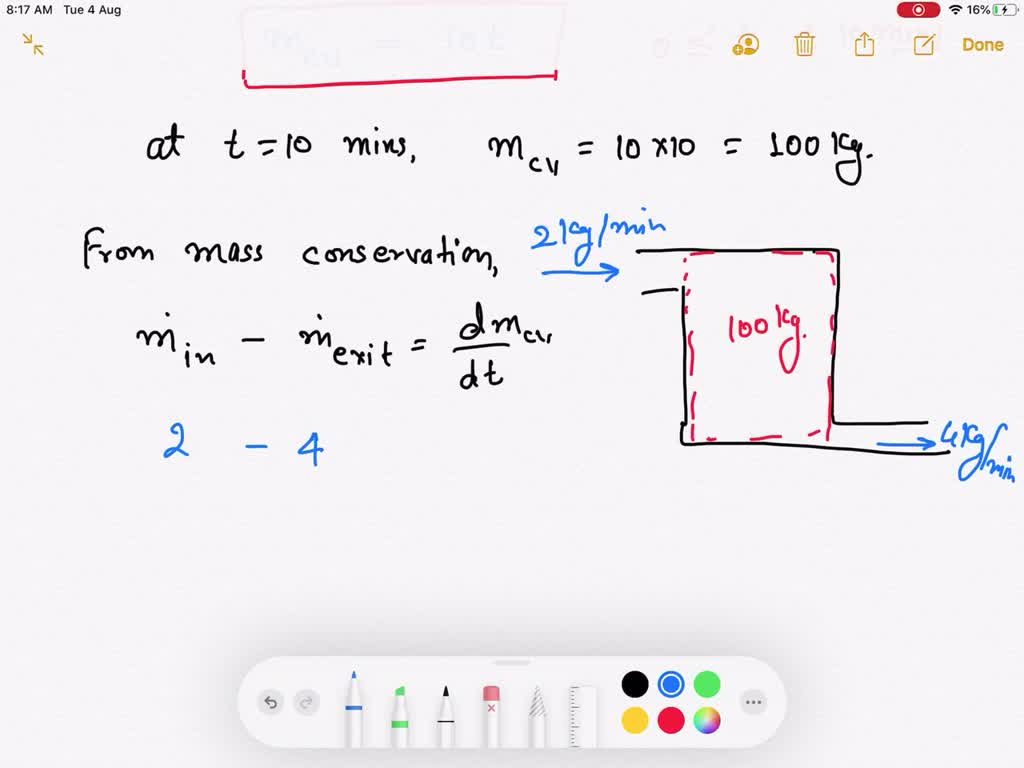 8:17 AM Tue 4 Aug
16%
Done
at t = 10 mins, m_cv = 10 × 10 = 100 Kg.
From mass conservation,
2 Kg/min
ṁ_in − ṁ_exit = dm_cv/dt
100 Kg.
2 − 4
4 Kg/min